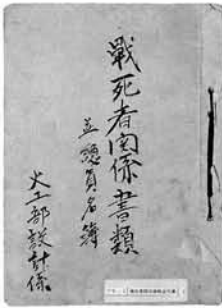 戰死者関係書類
並 總員名簿
火工部設計係